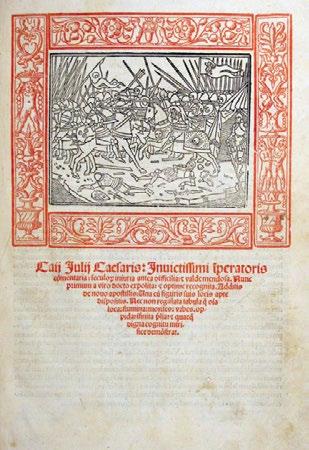 Caij Julij Caesaris: Inuictissimi Iperatoris
cōmentaria: seculoꝝ iniuria antea difficilia: ⁊ valde mendosa. Nunc
primum a viro docto expolita: ⁊ optime recognita. Additis
de nouo apostillis: Una cū figuris suis locis apte
dispositis. Nec non regulata tabula q̄ oīa
loca: flumina: montes: vrbes: op-
pida: prelia: ⁊ quaeq̄
digna cognitu miri-
fice demōstrat.